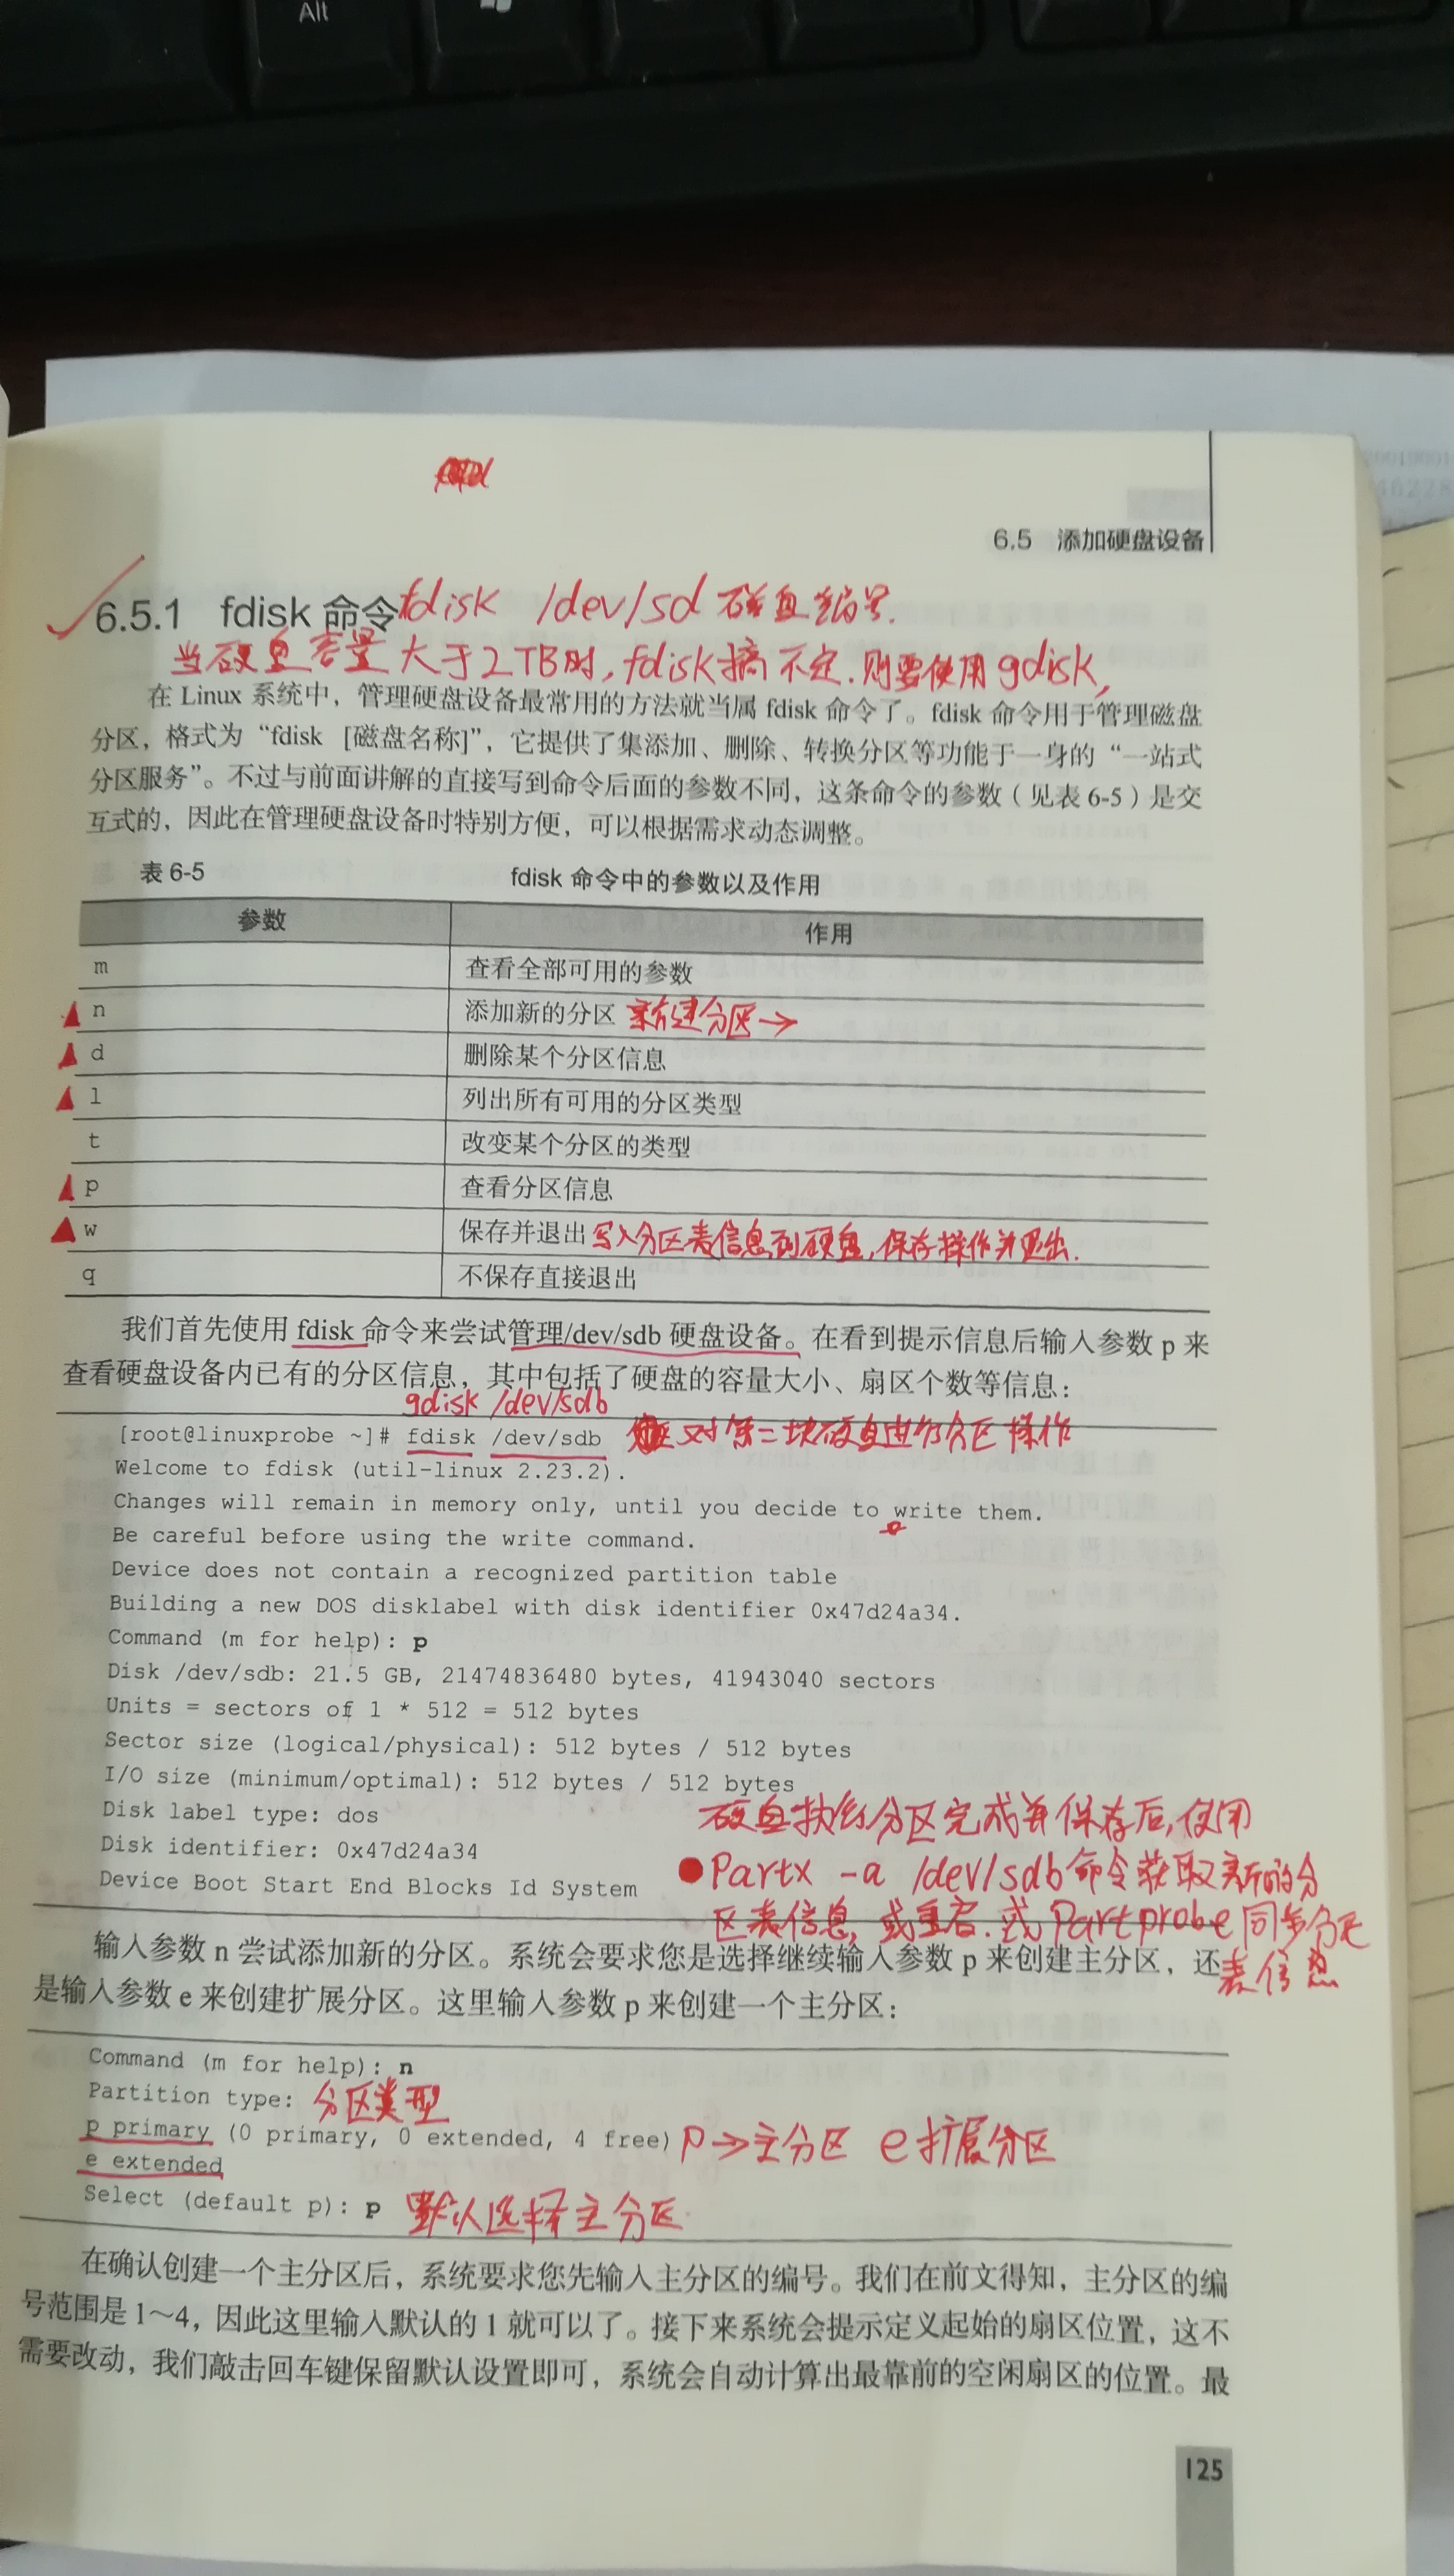 Alt
6.5 添加硬盘设备
6.5.1 fdisk 命令 fdisk /dev/sd 磁盘编号.
当硬盘容量大于2TB时, fdisk搞不定.则要使用gdisk,
在 Linux 系统中，管理硬盘设备最常用的方法就当属 fdisk 命令了。fdisk 命令用于管理磁盘
分区，格式为“fdisk [磁盘名称]”，它提供了集添加、删除、转换分区等功能于一身的“一站式
分区服务”。不过与前面讲解的直接写到命令后面的参数不同，这条命令的参数（见表 6-5）是交
互式的，因此在管理硬盘设备时特别方便，可以根据需求动态调整。
表 6-5 fdisk 命令中的参数以及作用
参数 作用
m 查看全部可用的参数
n 添加新的分区 新建分区→
d 删除某个分区信息
l 列出所有可用的分区类型
t 改变某个分区的类型
p 查看分区信息
w 保存并退出 写入分区表信息到硬盘,保存操作并退出.
q 不保存直接退出
我们首先使用 fdisk 命令来尝试管理/dev/sdb 硬盘设备。在看到提示信息后输入参数 p 来
查看硬盘设备内已有的分区信息，其中包括了硬盘的容量大小、扇区个数等信息：
gdisk /dev/sdb
[root@linuxprobe ~]# fdisk /dev/sdb 对第二块硬盘进行分区操作
Welcome to fdisk (util-linux 2.23.2).
Changes will remain in memory only, until you decide to write them.
Be careful before using the write command.
Device does not contain a recognized partition table
Building a new DOS disklabel with disk identifier 0x47d24a34.
Command (m for help): p
Disk /dev/sdb: 21.5 GB, 21474836480 bytes, 41943040 sectors
Units = sectors of 1 * 512 = 512 bytes
Sector size (logical/physical): 512 bytes / 512 bytes
I/O size (minimum/optimal): 512 bytes / 512 bytes
Disk label type: dos
Disk identifier: 0x47d24a34
Device Boot Start End Blocks Id System
硬盘执行分区完成并保存后,使用
Partx -a /dev/sdb命令获取新的分
区表信息, 或重启.或Partprobe同步分区
表信息
输入参数 n 尝试添加新的分区。系统会要求您是选择继续输入参数 p 来创建主分区，还
是输入参数 e 来创建扩展分区。这里输入参数 p 来创建一个主分区：
Command (m for help): n
Partition type: 分区类型
p primary (0 primary, 0 extended, 4 free) P→主分区 e扩展分区
e extended
Select (default p): p 默认选择主分区.
在确认创建一个主分区后，系统要求您先输入主分区的编号。我们在前文得知，主分区的编
号范围是 1～4，因此这里输入默认的 1 就可以了。接下来系统会提示定义起始的扇区位置，这不
需要改动，我们敲击回车键保留默认设置即可，系统会自动计算出最靠前的空闲扇区的位置。最
125